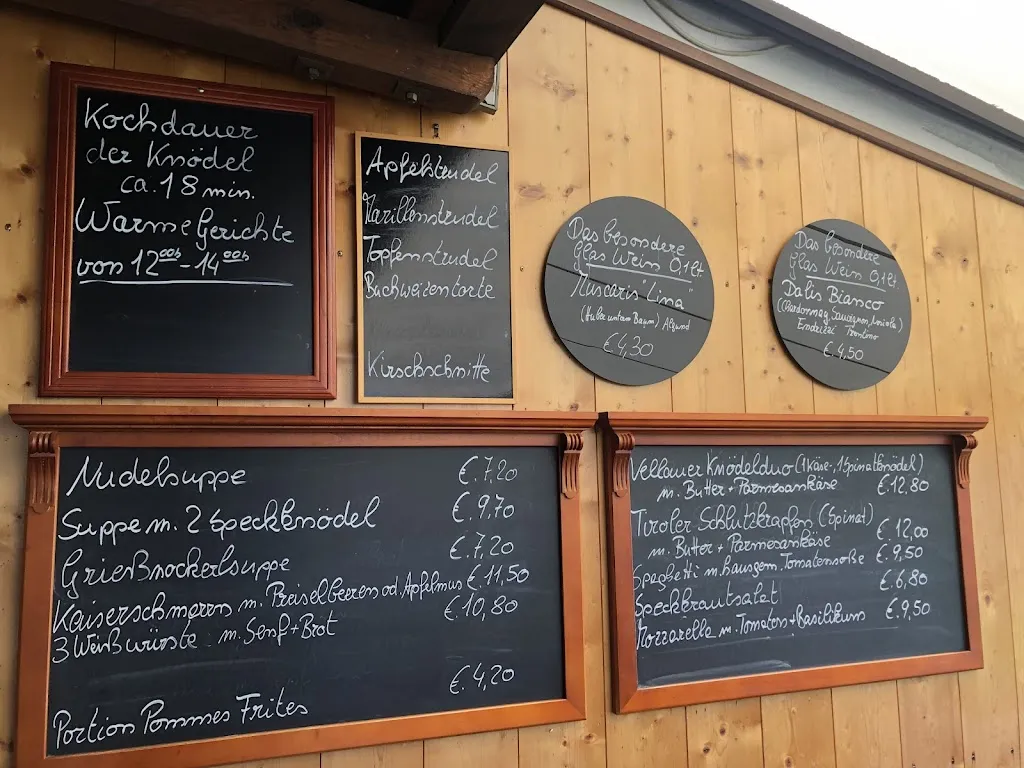 Kochdauer
der Knödel
ca. 18 min.
Warme Gerichte
von 12ººh - 14ººh
Apfelstrudel
Marillenstrudel
Topfenstrudel
Buchweizentorte
Kirschschnitte
Das besondere
Glas Wein 0,1lt
Muscaris "Lina"
(Huber untam Baum) Algund
€ 4,30
Das besondere
Glas Wein 0,1lt.
Dalis Bianco
(Chardonnay, Sauvignon,
Endrizzi Trentino
€ 4,50
Nudelsuppe €.7,20
Suppe m. 2 Speckknödel €.9,70
Grießnockerlsuppe €.7,20
Kaiserschmarrn m. Preiselbeeren od. Apfelmus €.11,50
3 Weißwürste m. Senf + Brot €.10,80
Portion Pommes Frites €.4,20
Vellauer Knödelduo (1 Käse-, 1 Spinatknödel)
m. Butter + Parmesankäse €.12,80
Tiroler Schlutzkrapfen (Spinat)
m. Butter + Parmesankäse €.12,00
Speghetti m. hausgem. Tomatensoße €.9,50
Speckkrautsalat €.6,80
Mozzarella m. Tomaten + Basilikum €.9,50